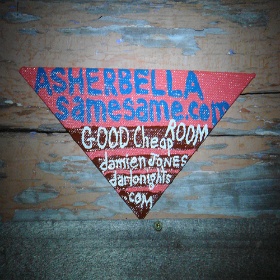 ASHERBELLA
samesame.com
GOOD Cheap ROOM
damien JONES
darlonights
.com